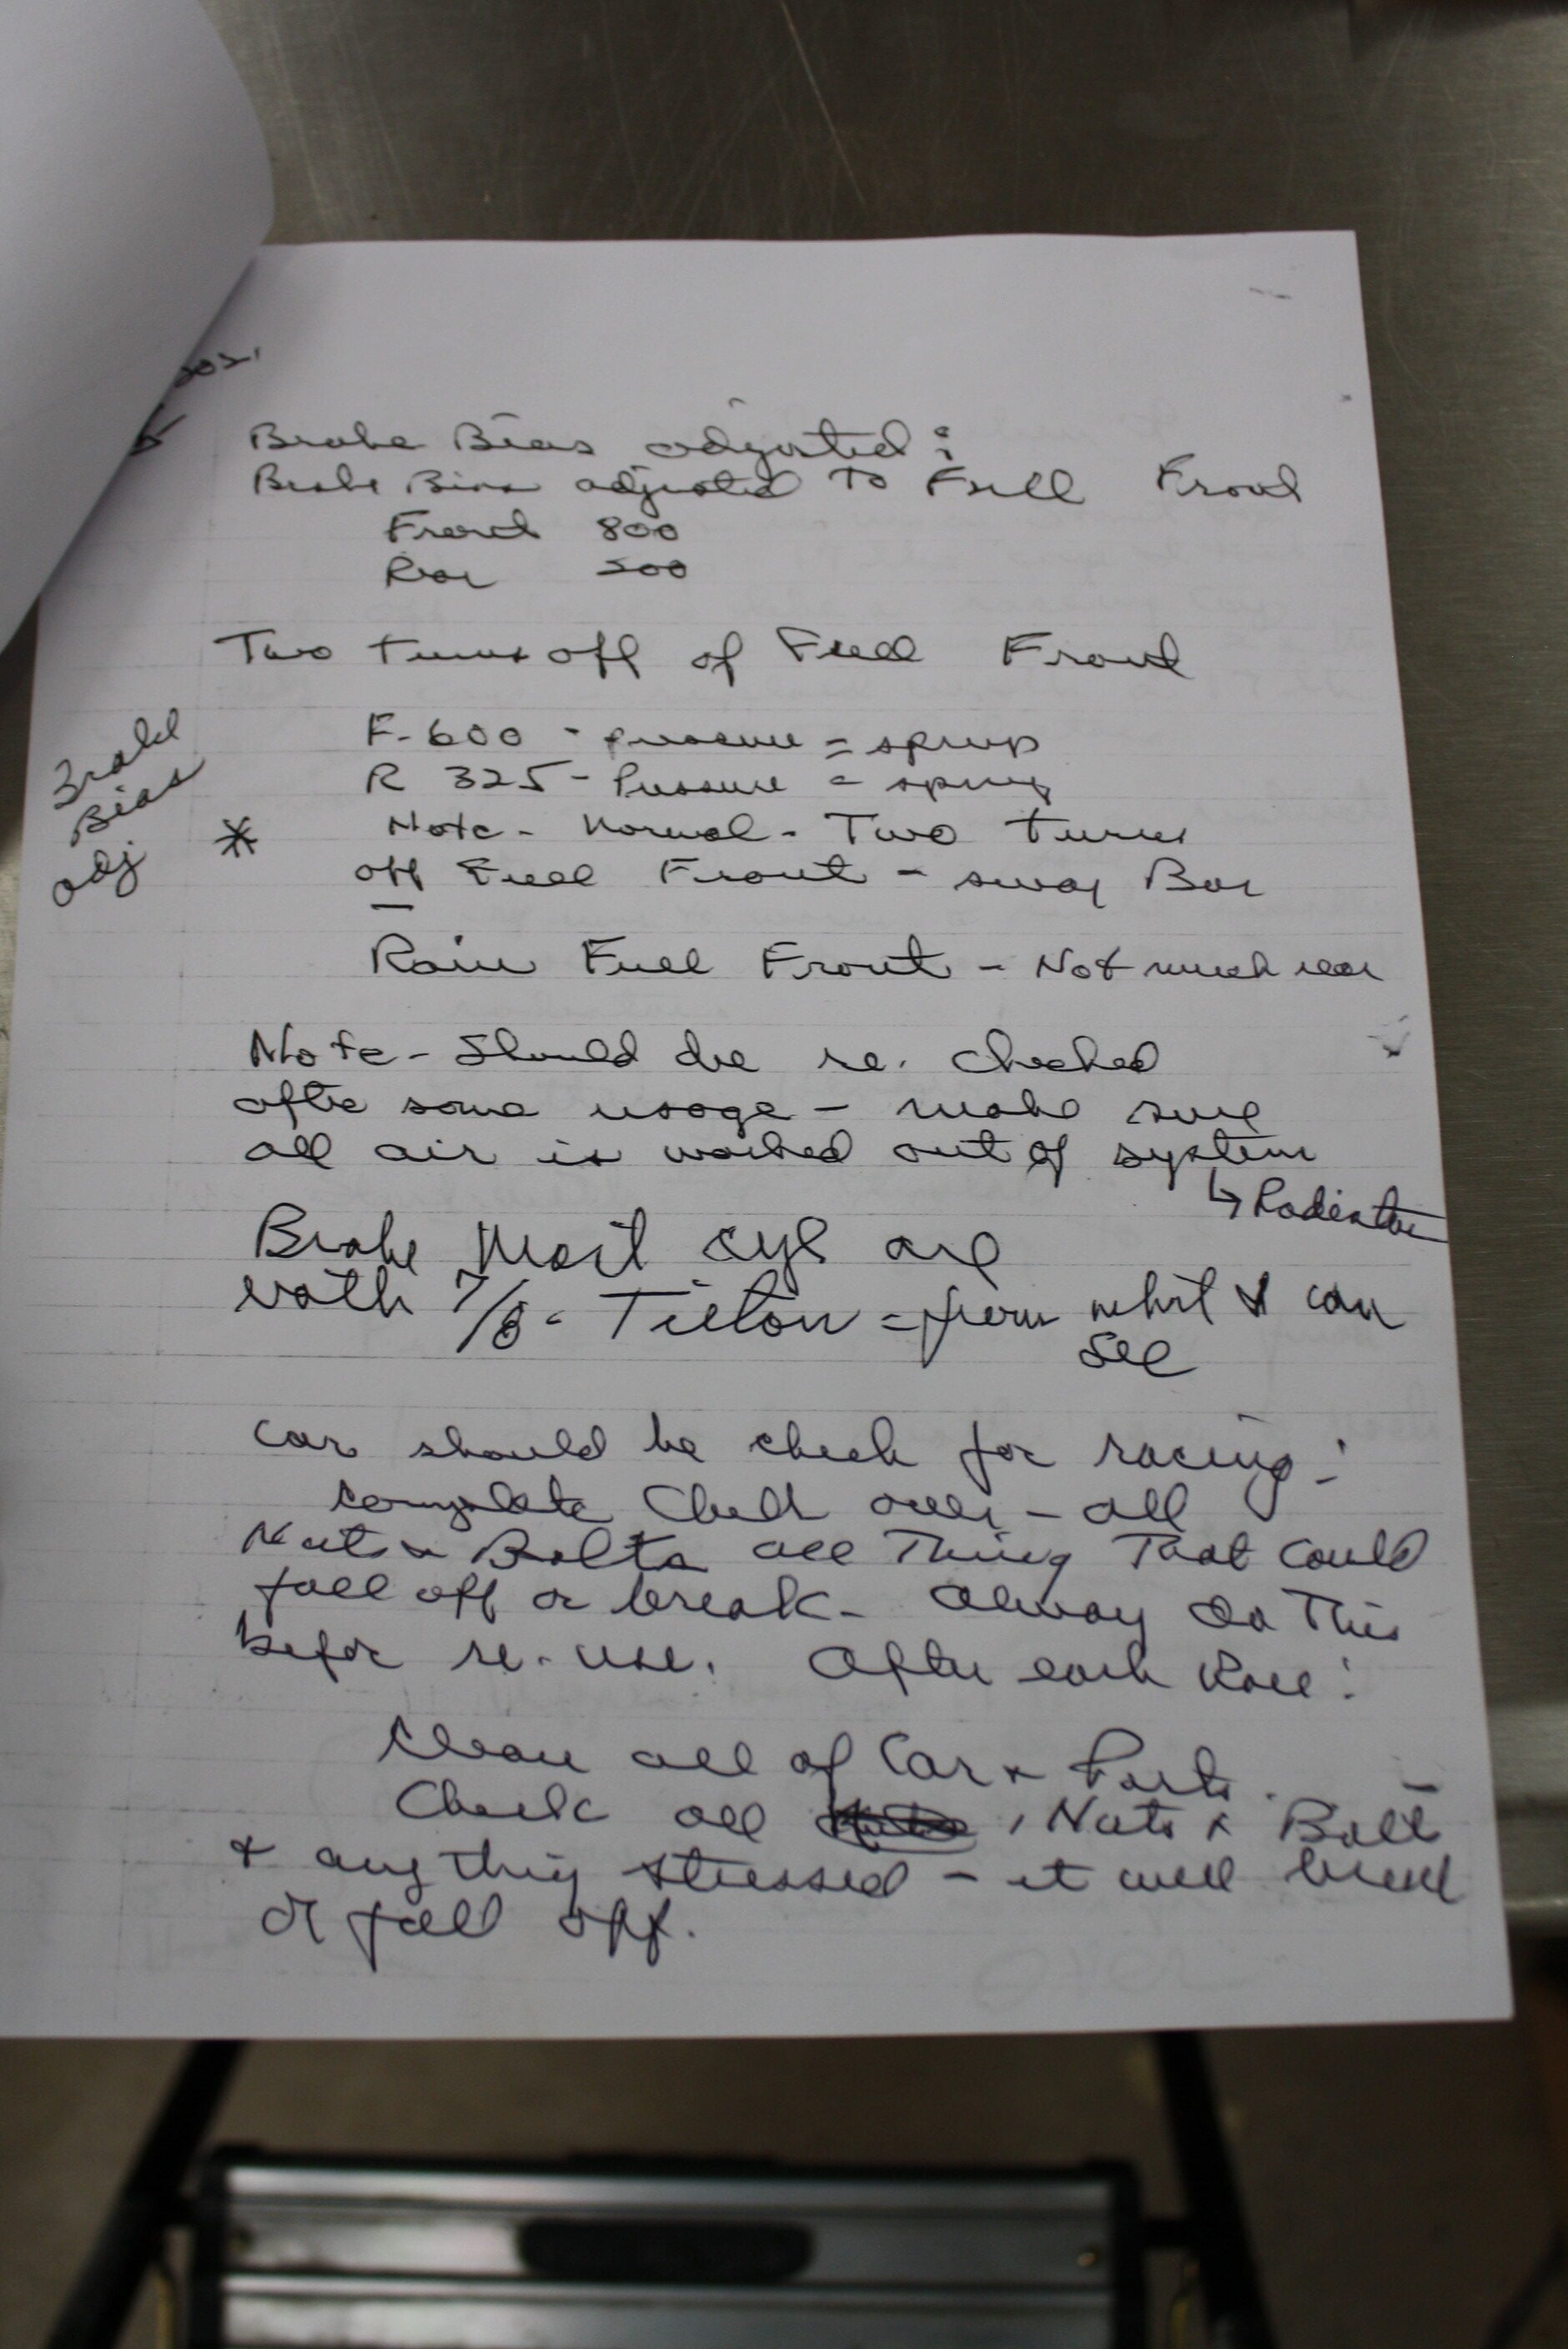 Brake Bias adjusted:
Brake Bias adjusted To Full Front
Front 800
Rear 200
Two turns off of Full Front
F-600 - pressure = spring
R 325 - Pressure = spring
Brake
Bias
adj
* Note - Normal - Two turns
off Full Front - sway Bar
Rain Full Front - Not much rear
Note - Should be re. checked
after some usage - make sure
all air is worked out of system
↳ Radiator
Brake Mast cyl are
both 7/8 - Tilton = from what I can
see
Car should be check for racing:
complete Check over - all
Nuts & Bolts all Thing That could
fall off or break - alway do This
befor re-use. After each Race:
Clean all of Car & Parts.
Check all , Nuts & Bolt
& any thing stressed - it will break
or fall off.